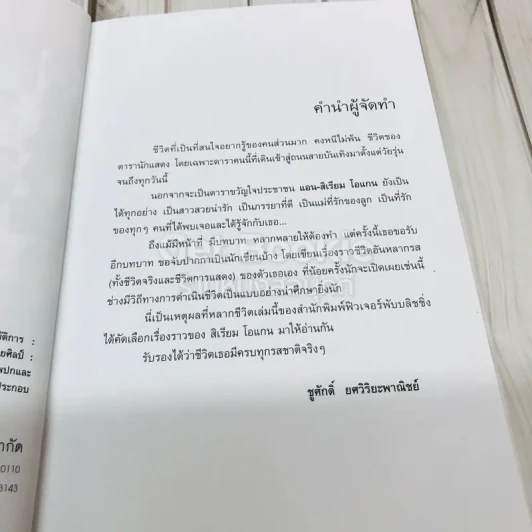 คำนำผู้จัดทำ
ชีวิตที่เป็นที่สนใจอยากรู้ของคนส่วนมาก คงหนีไม่พ้น ชีวิตของ
ดารานักแสดง โดยเฉพาะดาราคนนี้ที่เดินเข้าสู่ถนนสายบันเทิงมาตั้งแต่วัยรุ่น
จนถึงทุกวันนี้
นอกจากจะเป็นดาราขวัญใจประชาชน แอน-สิเรียม โอแกน ยังเป็น
ได้ทุกอย่าง เป็นสาวสวยน่ารัก เป็นภรรยาที่ดี เป็นแม่ที่รักของลูก เป็นที่รัก
ของทุกๆ คนที่ได้พบเจอและได้รู้จักกับเธอ...
ถึงแม้มีหน้าที่ มีบทบาท หลากหลายให้ต้องทำ แต่ครั้งนี้เธอขอรับ
อีกบทบาท ขอจับปากกาเป็นนักเขียนบ้าง โดยเขียนเรื่องราวชีวิตอันหลากรส
(ทั้งชีวิตจริงและชีวิตการแสดง) ของตัวเธอเอง ที่น้อยครั้งนักจะเปิดเผยเช่นนี้
ช่างมีวิถีทางการดำเนินชีวิตเป็นแบบอย่างน่าศึกษายิ่งนัก
นี่เป็นเหตุผลที่หลากชีวิตเล่มนี้ของสำนักพิมพ์ฟิวเจอร์พับบลิชชิ่ง
ได้คัดเลือกเรื่องราวของ สิเรียม โอแกน มาให้อ่านกัน
รับรองได้ว่าชีวิตเธอมีครบทุกรสชาติจริงๆ
ชูศักดิ์ ยศวิริยะพาณิชย์
บัติการ :
ยศิลป์ :
พปกและ
ประกอบ
ากัด
0110
3143